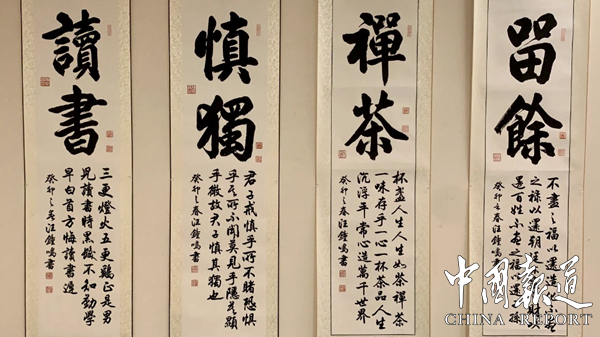 讀書
三更燈火五更鷄正是男
兒讀書時黑髮不知勤學
早白首方悔讀書遲
癸卯之春汪鐘鳴書
慎獨
君子戒慎乎所不睹恐懼
乎其所不聞莫見乎隱莫顯
乎微故君子慎其獨也
癸卯之春汪鐘鳴書
禪茶
杯盞人生人生如茶禪茶
一味存乎一心一杯茶品人生
沉浮平常心造萬千世界
癸卯之春汪鐘鳴書
留餘
不盡之福以還造不盡
之祿以還朝
還百姓不盡之還孫
癸卯之春汪鐘鳴書
中國報道
CHINA REPORT